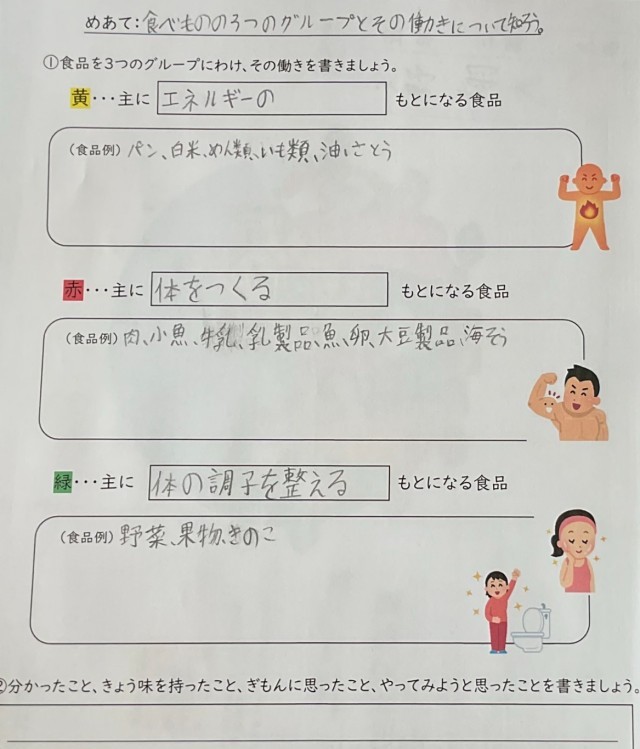 めあて：食べものの3つのグループとその働きについて知ろう。
①食品を3つのグループにわけ、その働きを書きましょう。
黄・・・主に エネルギーの もとになる食品
（食品例）パン、白米、めん類、いも類、油、さとう
赤・・・主に 体をつくる もとになる食品
（食品例）肉、小魚、牛乳、乳製品、魚、卵、大豆製品、海そう
緑・・・主に 体の調子を整える もとになる食品
（食品例）野菜、果物、きのこ
②分かったこと、きょう味を持ったこと、ぎもんに思ったこと、やってみようと思ったことを書きましょう。